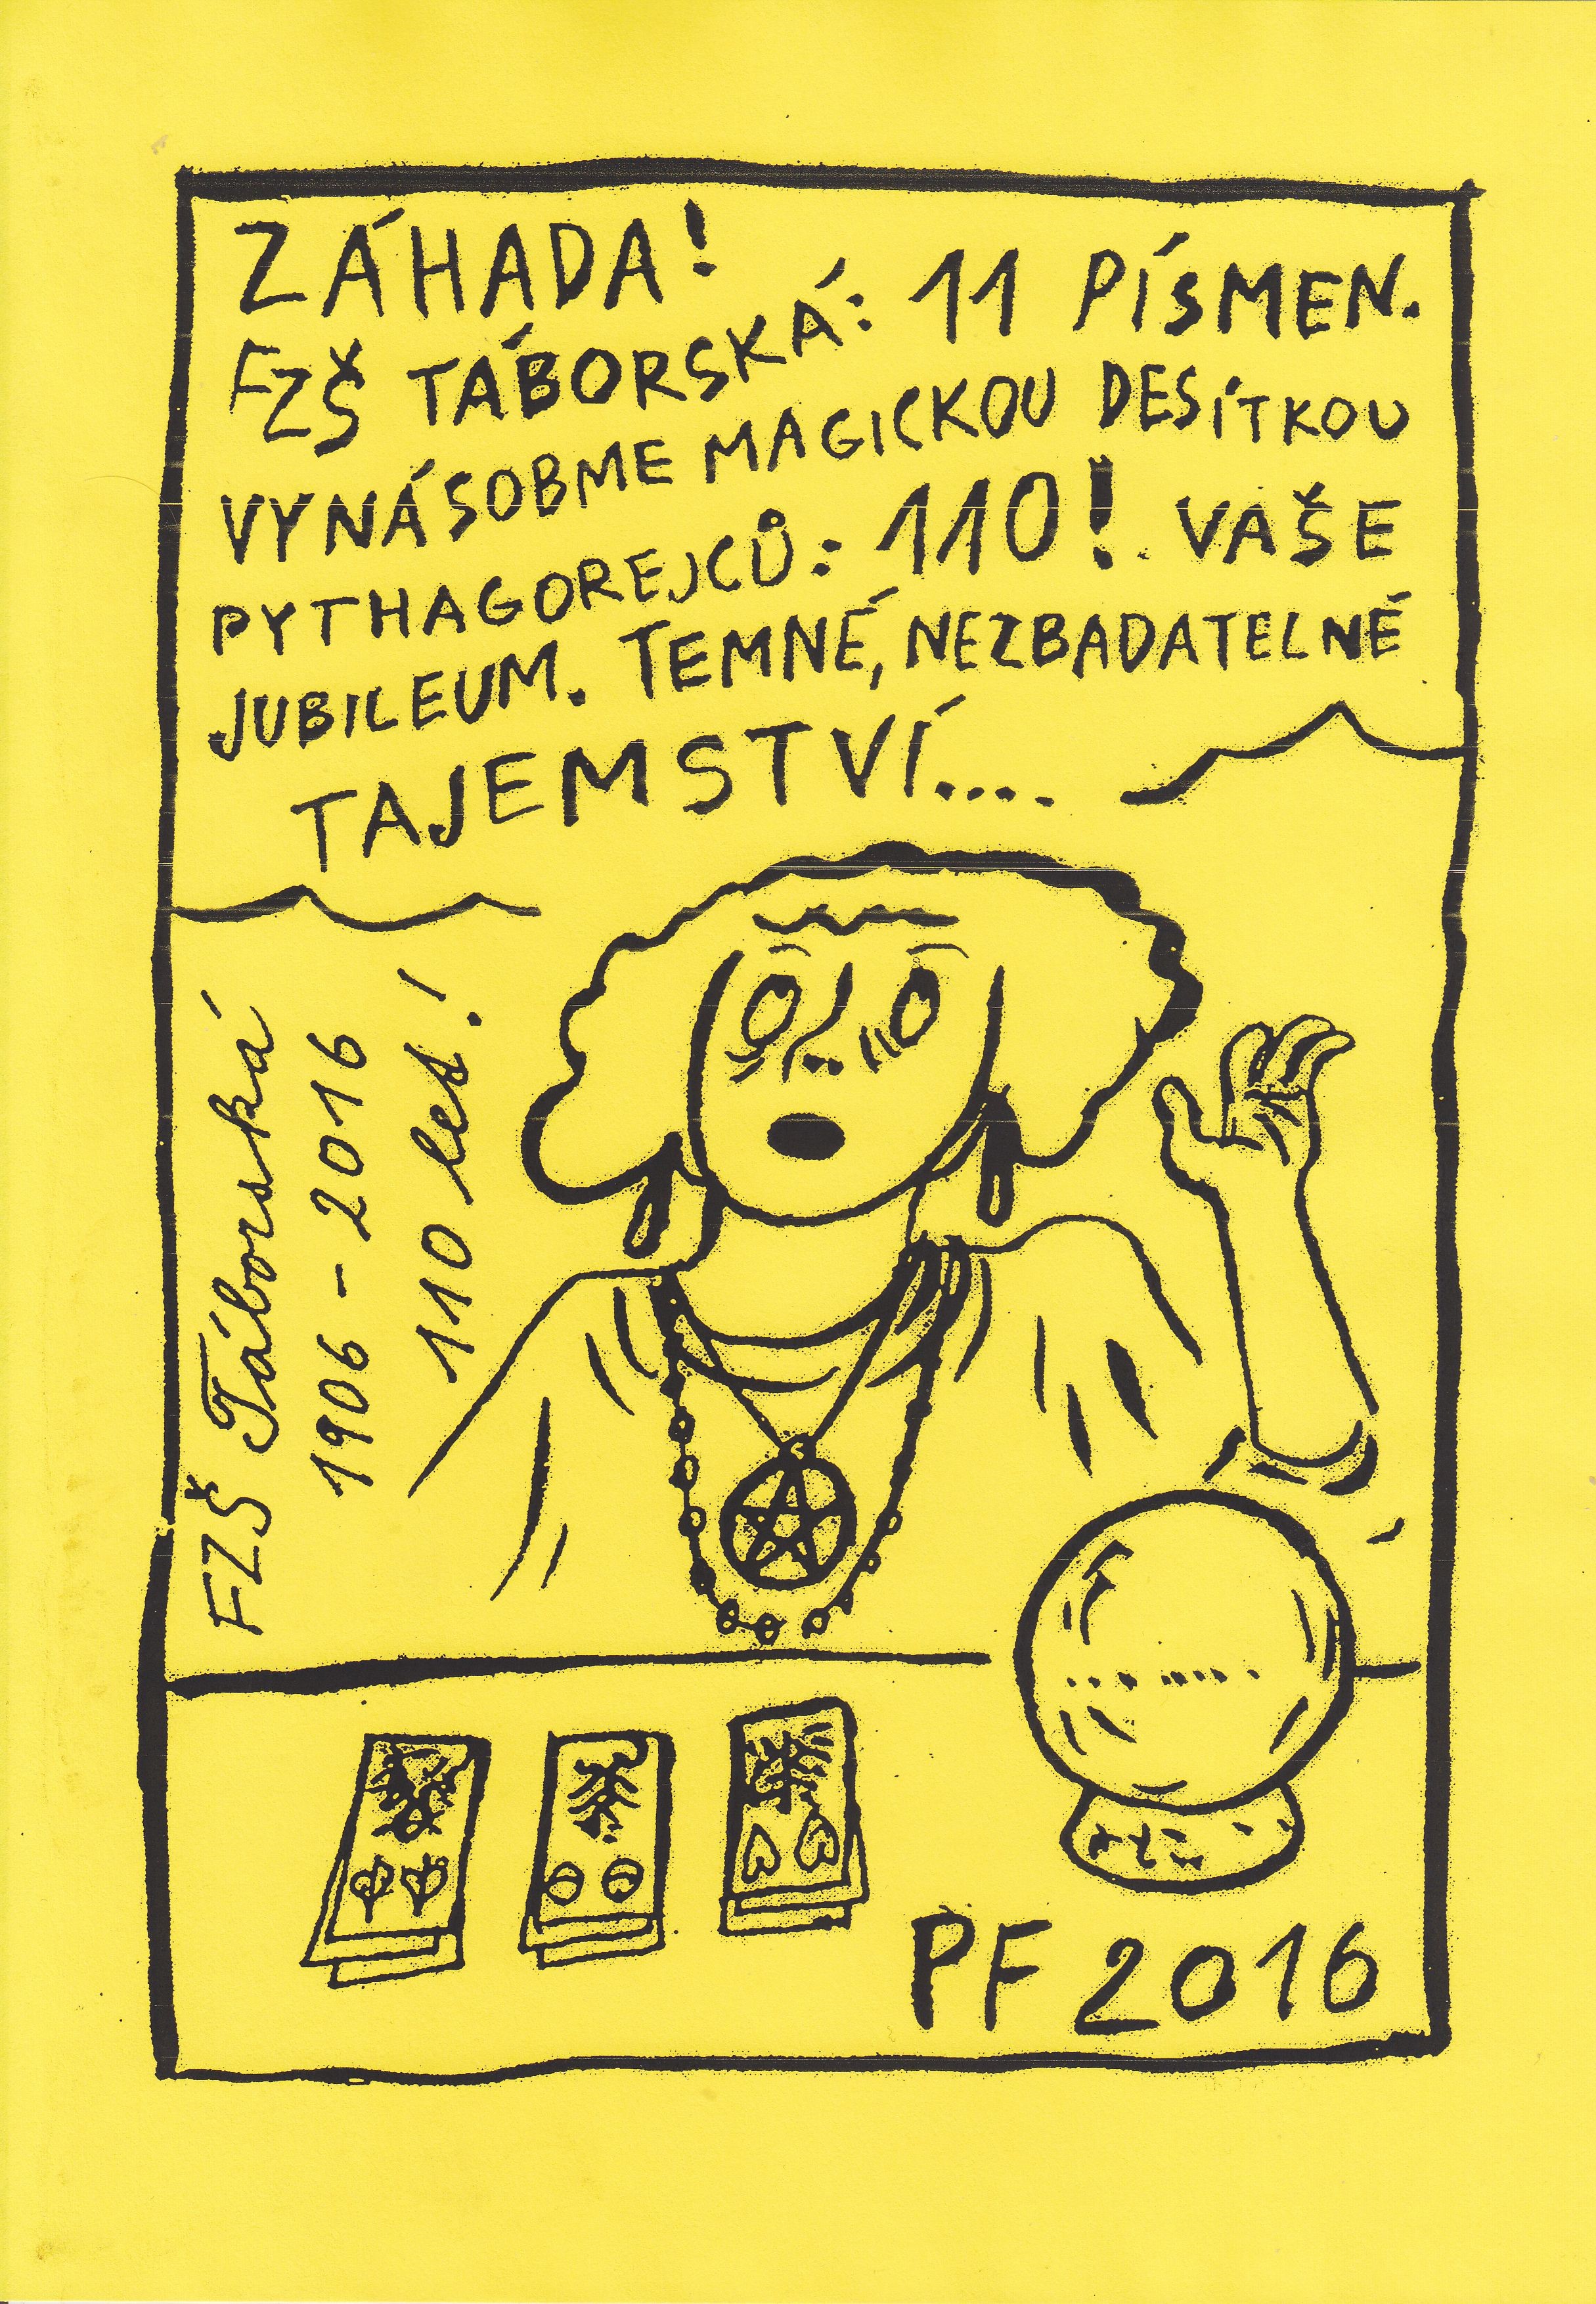 ZÁHADA!
FZŠ TÁBORSKÁ: 11 PÍSMEN.
VYNÁSOBME MAGICKOU DESÍTKOU
PYTHAGOREJCŮ: 110! VAŠE
JUBILEUM. TEMNÉ, NEZBADATELNÉ
TAJEMSTVÍ....
FZŠ Táborská
1906 - 2016
110 let!
PF 2016